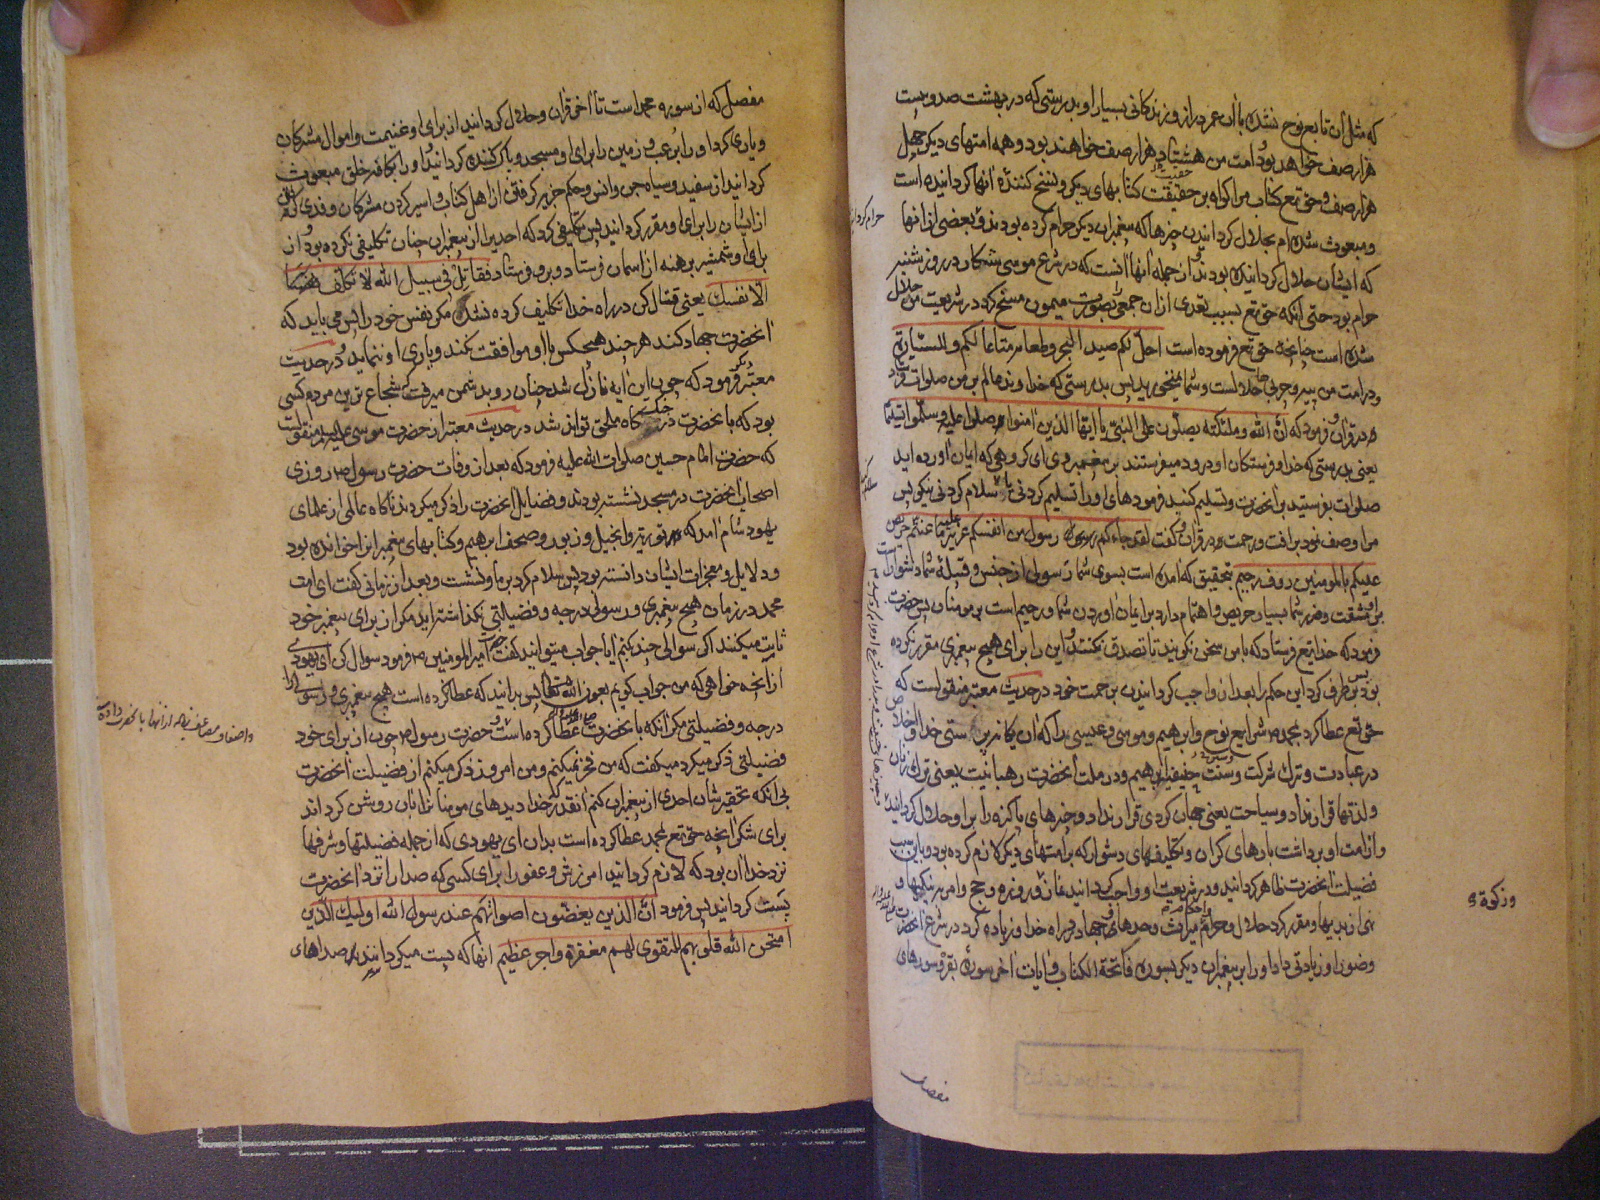 که مثل آن تابع نوح نشدند با آن عمر دراز و زندگانی بسیار او بدرستی که در بهشت صد و بیست
هزار صف خواهد بود امت من هشتاد هزار صف خواهند بود و همه امتهای دیگر چهل
هزار صف و حق تع کتاب مرا گواه بر حقیقت کتابهای دیگر و نسخ کننده آنها گردانیده است
و مبعوث شده‌ام بحلال گردانیدن چیزها که پیغمبران دیگر حرام کرده بودند و بعضی از آنها
که ایشان حلال گردانیده بودند از جمله آنها آنست که در شرع موسی شکار در روز شنبه
حرام بود حتی آنکه حق تع بسبب تعدی ازان جمعی را بصورت میمون مسخ کرد و در شریعت من حلال
شده است چنانچه حق تع فرموده است احل لکم صید البحر و طعامه متاعا لکم و للسیارة
و در امت من پیه و چربی حلالست و شما نمیخورید پس بدرستی که خداوند عالم بر من صلوات فرستاد
در قرآن و فرمود که ان الله و ملئکته یصلون علی النبی یا ایها الذین آمنوا صلوا علیه و سلموا تسلیما
یعنی بدرستی که خدا و فرشتگان او درود میفرستند بر پیغمبر وی ای گروهی که ایمان آورده اید
صلوات بفرستید بر آنحضرت و تسلیم کنید فرموده‌های او را تسلیم کردنی یا سلام کردنی نیکو پس
مرا وصف نمود برافت و رحمت و در قرآن گفت لقد جاءکم رسول من انفسکم عزیز علیه ما عنتم حریص
علیکم بالمومنین رؤف رحیم بتحقیق که آمده است بسوی شما رسولی از جنس و قبیله شما دشوار است
بر او مشقت و ضرر شما بسیار حریص و اهتمام دارد بر ایمان آوردن شما و رحیم است بر مومنان پس حضرت
فرمود که خدا یتع فرستاد که با من سخن نگویند تا تصدق نکنند و این را برای هیچ پیغمبری مقرر نکرده
بود پس بر طرف کرد این حکم را بعد از واجب گردانیدن برحمت خود در حدیث معتبر منقولست که
حق تع عطا کرد بمحمد ص شرایع نوح و ابراهیم و موسی و عیسی را که آن یگانه پرستی خدا و اخلاص
در عبادت و ترک شرکت و سنت حنیفه ابراهیم و در ملت آنحضرت رهبانیت یعنی ترک زنان
و لذتها قرار نداد و سیاحت یعنی جهان گردی قرار نداد و چیزهای پاکیزه را بر او حلال گردانید
و از امت او برداشت بارهای گران و تکلیفهای دشوار که بر امتهای دیگر لازم کرده بود و باین سبب
فضیلت آنحضرت ظاهر گردانید و در شریعت او واجب گردانید نماز و روزه و حج و امر به نیکیها و
نهی از بدیها و مقرر کرد حلال و حرام و میراث و حدهای و جهاد در راه خدا و زیاده کرد در شرع آنحضرت
وضو را و زیادتی داد او را بر پیغمبران دیگر بسوره فاتحة الکتاب و آیات آخر سوره بقر و سوره‌های
و زکوة و
مفصل
مفصل که از سوره محمد است تا آخر قرآن و حلال گردانید از برای او غنیمت و اموال مشرکان
و یاری کرد او را برعب و زمین را برای او مسجد و پاک کننده گردانید و او را بکافه خلق مبعوث
گردانید از سفید و سیاه جن و انس و حکم جزیه گرفتن از اهل کتاب و اسیر کردن مشرکان و فدی گرفتن
از ایشان را برای او مقرر گردانید پس تکلیفی کرد که احدی را از پیغمبران چنان تکلیفی نکرده بود و از
برای او شمشیر برهنه از آسمان فرستاد و برو فرستاد فقاتل فی سبیل الله لا تکلف
الا نفسک یعنی قتال کن در راه خدا تکلیف کرده نشده مگر نفس خود را پس می باید که
آنحضرت جهاد کند هر چند هیچکس با او موافقت نکند و یاری او ننماید و در حدیث
معتبر دیگر فرمود که چون این آیه نازل شد چنان رو بدشمن میرفت که شجاع ترین مردم کسی
بود که بآنحضرت در جنگ گاه ملحق تواند شد در حدیث معتبر از حضرت موسی علیه السلام منقولست
که حضرت امام حسین صلوات الله علیه فرمود که بعد از وفات حضرت رسول ص روزی
اصحاب آنحضرت در مسجد نشسته بودند و فضایل آنحضرت را ذکر میکردند ناگاه عالمی از علمای
یهود شام آمد که توریة و انجیل و زبور و صحف ابراهیم و کتابهای پیغمبران را خوانده بود
و دلایل و معجزات ایشان دانسته بود پس سلام کرد بر ما و نشست و بعد از زمانی گفت ای امت
محمد در زمان هیچ پیغمبری و رسولی درجه و فضیلتی نگذاشته‌اید مگر از برای پیغمبر خود
ثابت میکنند اگر سوالی چند کنم آیا جواب میتوانید گفت حضرت امیرالمومنین ص فرمود سوال کن ای یهودی
از آنچه خواهی که من جواب گویم بعون الله تعالی پس بدانید که عطا کرده است هیچ پیغمبری و رسولی را
درجه و فضیلتی مگر آنکه بآنحضرت عطا کرده است و حضرت رسول ص چون از برای خود
فضیلتی ذکر میکرد میگفت که من فخر نمیکنم و من امروز ذکر میکنم از فضیلت آنحضرت
بی آنکه تحقیر شان احدی از پیغمبران کنم آنقدر که خدا دیده‌های مومنان را بان روشن گرداند
برای شکر آنچه حق تع بمحمد عطا کرده است بدان ای یهودی که از جمله فضیلتها و شرفها
نزد خدا آن بود که لازم گردانید آمرزش و عفو را برای کسی که صدا را نزد آنحضرت
پست گرداند پس فرمود ان الذین یغضون اصواتهم عند رسول الله اولئک الذین
امتحن الله قلوبهم للتقوی لهم مغفرة و اجر عظیم آنها که پست میگردانند صداهای